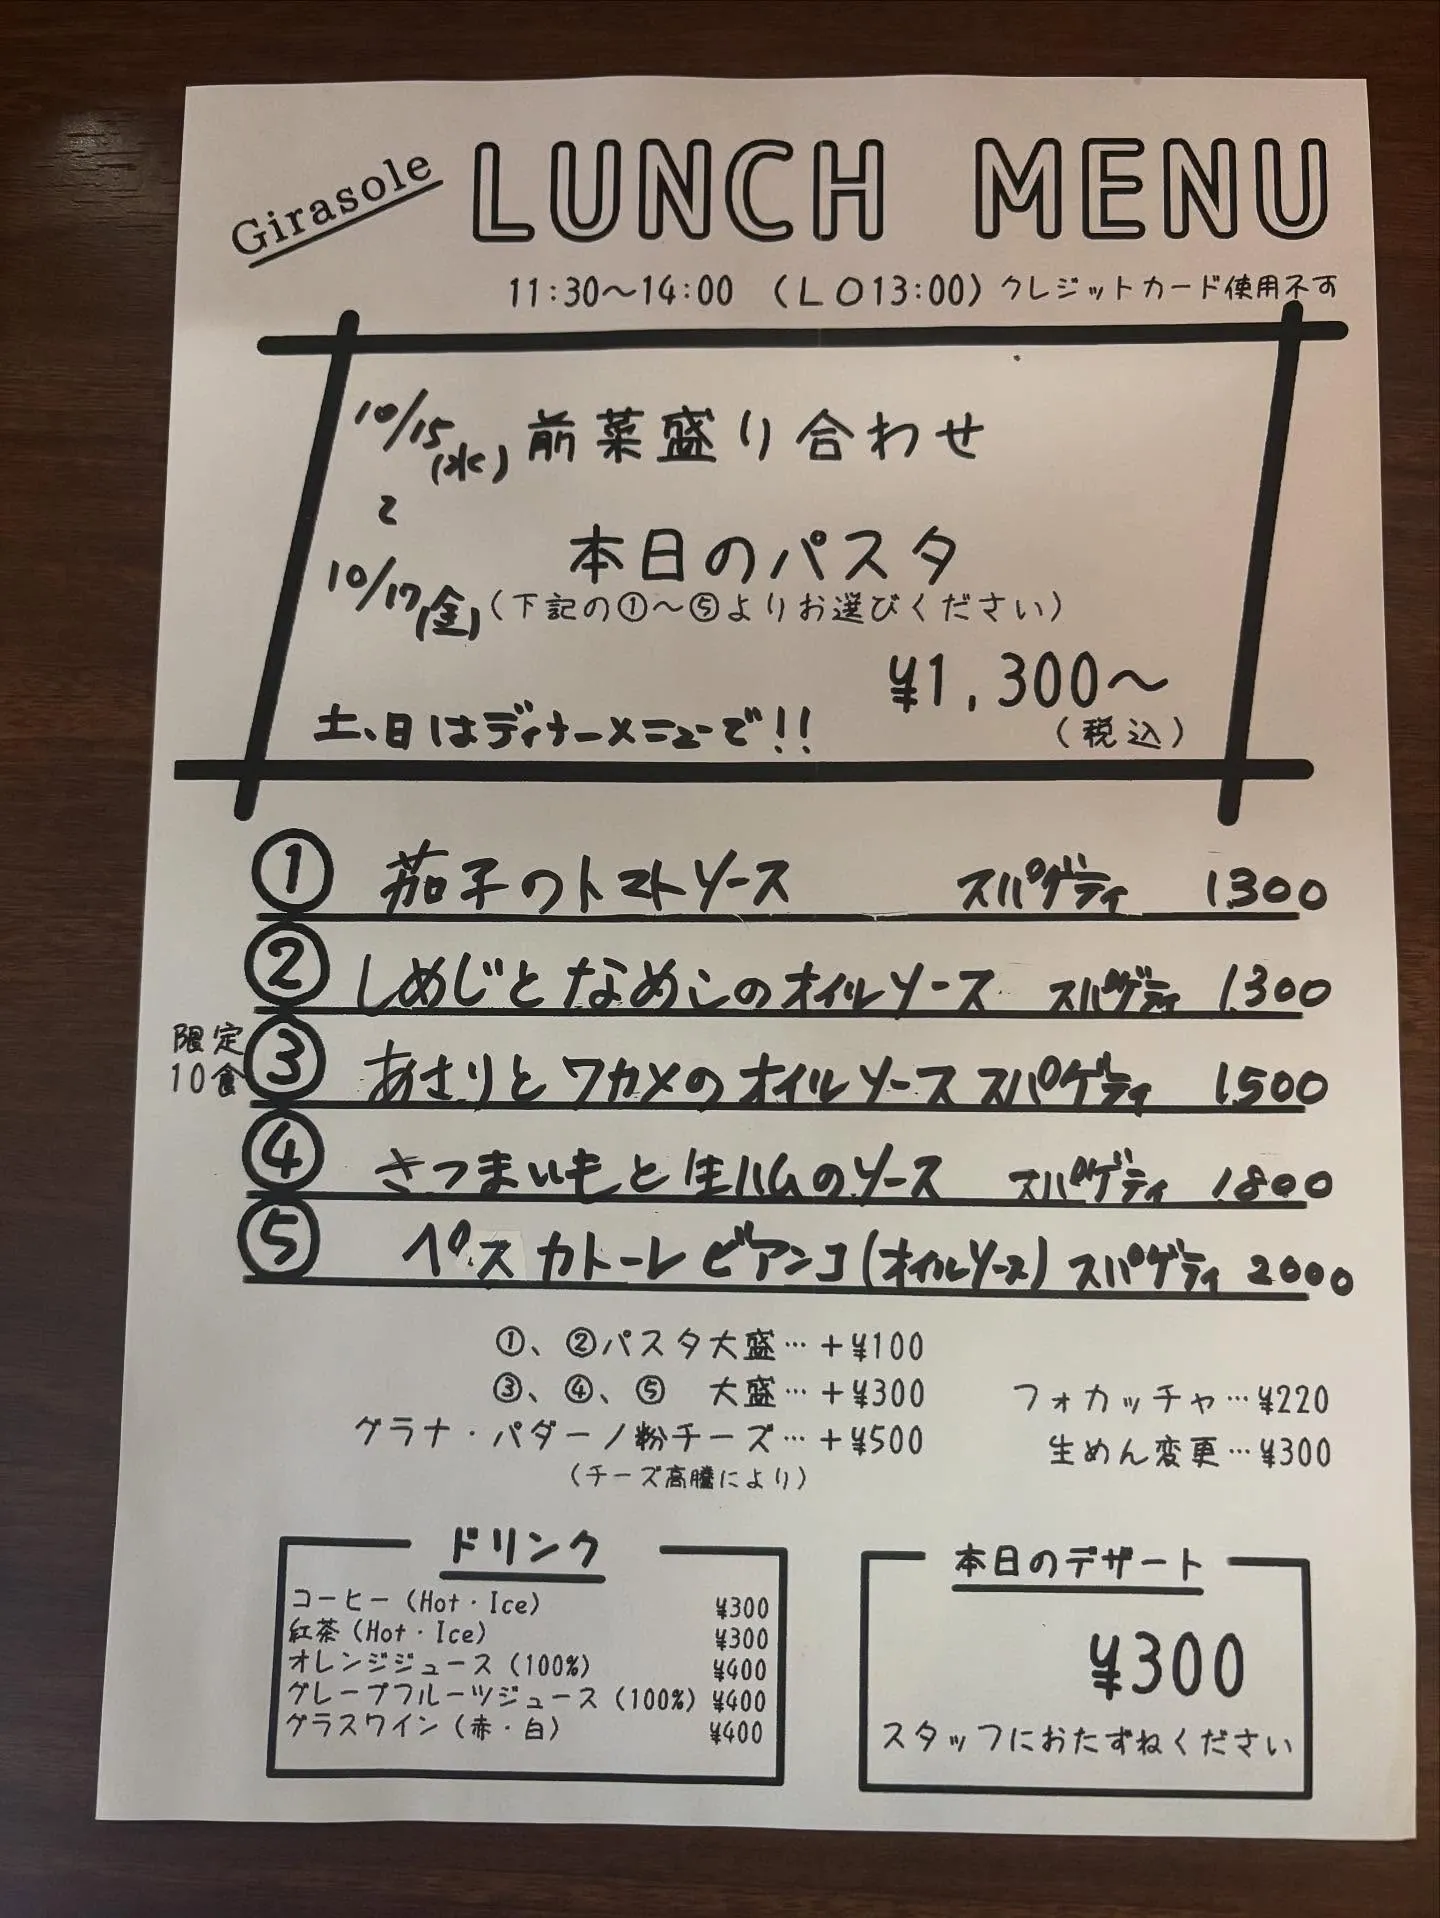 Girasole LUNCH MENU
11:30〜14:00 （ＬＯ13:00）クレジットカード使用不可
10/15(水) 前菜盛り合わせ
〜
本日のパスタ
10/17(金) （下記の①〜⑤よりお選びください）
¥1,300〜
土、日はディナーメニューで!!
（税込）
① 茄子のトマトソース スパゲティ 1.300
② しめじとなめこのオイルソース スパゲティ 1.300
限定10食 ③ あさりとワカメのオイルソース スパゲティ 1.500
④ さつまいもと生ハムのソース スパゲティ 1.800
⑤ ペスカトーレ ビアンコ(オイルソース) スパゲティ 2000
①、②パスタ大盛…＋¥100
③、④、⑤ 大盛…＋¥300
フォカッチャ…¥220
グラナ・パダーノ粉チーズ…＋¥500
生めん変更…¥300
（チーズ高騰により）
ドリンク
コーヒー（Hot・Ice） ¥300
紅茶（Hot・Ice） ¥300
オレンジジュース（100%） ¥400
グレープフルーツジュース（100%） ¥400
グラスワイン（赤・白） ¥400
本日のデザート
¥300
スタッフにおたずねください